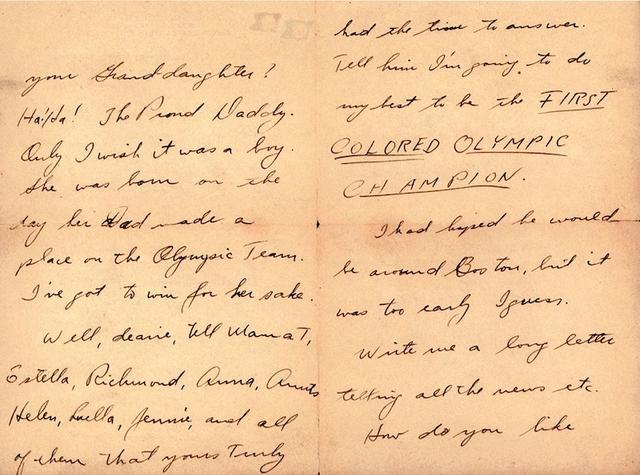 your Granddaughter?
Ha! Ha! The Proud Daddy.
Only I wish it was a boy.
She was born on the
day her Dad made a
place on the Olympic Team.
I've got to win for her sake.
Well, dearie, tell Mama T,
Estella, Richmond, Anna, Aunts
Helen, Luella, Jennie, and all
of them that yours Truly
had the time to answer.
Tell him I'm going to do
my best to be the FIRST
COLORED OLYMPIC
CHAMPION.
I had hoped he would
be around Boston, but it
was too early I guess.
Write me a long letter
telling all the news etc.
How do you like